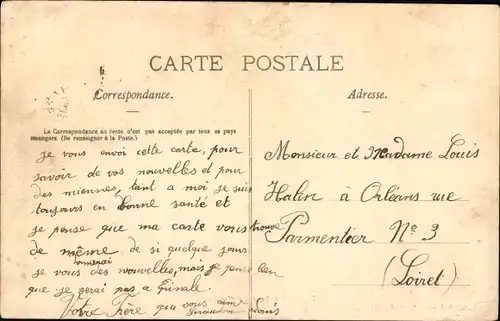 CARTE POSTALE
Correspondance.
Adresse.
La Correspondance au recto n'est pas acceptée par tous es pays
étrangers. (Se renseigner à la Poste.)
je vous envoi cette carte, pour
savoir de vos nouvelles et pour
des miennes, tant a moi je suis
toujours en bonne santé et
je pense que ma carte vous trouve
de même, de si quelque jours
je vous donnerai des nouvelles, mais je pense bien
que je serai pas a Epinale.
Votre Frère que vous aime
Louis
Monsieur et Madame Louis
Halin à Orléans rue
Parmentier N° 3
(Loiret)